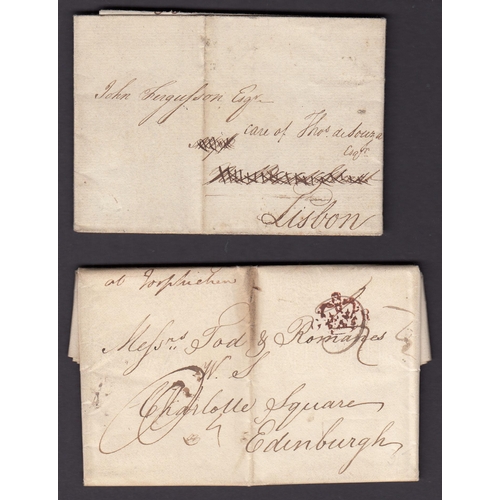 John Fergusson Esqr.
care of Thos. de Souza
Esqre
Lisbon
Messrs. Tod & Romanes
W. S
Charlotte Square
Edinburgh